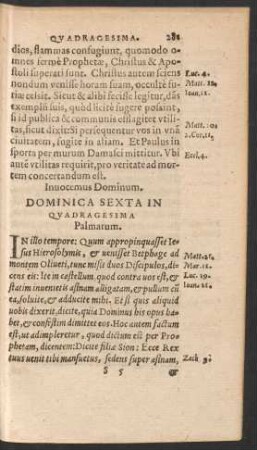 QVADRAGESIMA. 281
dios, flammas confugiunt, quomodo o-
mnes fermè Prophetæ, Christus & Apo-
stoli superati sunt. Christus autem sciens
nondum venisse horam suam, occultè fu-
isse
legitur, dãs
exemplũ suis, quod licitè fugere possent,
si id publica & communis efflagitet vtili-
tas, sicut dixit: Si persequentur vos in vnã
ciuitatem, fugite in aliam. Et Paulus in
sporta per murum Damasci mittitur. Vbi
autē vtilitas requirit, pro veritate ad mor-
tem concertandum est.
Inuocemus Dominum.
DOMINICA SEXTA IN
QVADRAGESIMA
Palmarum.
IN illo tempore: Quum appropinquasset Ie-
sus Hierosolymis, & uenisset Bethphage ad
montem Oliueti, tunc misit duos Discipulos, di-
cens eis: Ite in castellum quod contra uos est, &
statim inuenietis asinam alligatam, & pullum cũ
ea, soluite, & adducite mihi. Et si quis aliquid
uobis dixerit dicite, quia Dominus his opus ha-
bet, & confestim dimittet eos. Hoc autem factum
est, ut adimpleretur, quod dictum est per Pro-
phetam, dicentem: Dicite filiæ Sion: Ecce Rex
tuus uenit tibi mansuetus, sedens super asinam,
S 5 &
Luc. 4.
Ioan.
Matt. 10.
2. Cor. 11.
Eccl. 4.
Matt. 21.
Mar. 11.
Luc. 19.
Zach